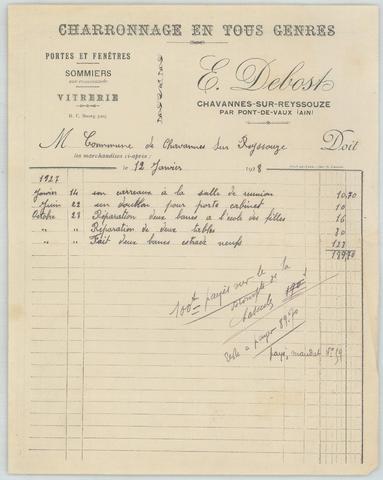 CHARRONNAGE EN TOUS GENRES
PORTES ET FENÊTRES
SOMMIERS
VITRERIE
R. C. Bourg
E. Debost
CHAVANNES-SUR-REYSSOUZE
PAR PONT-DE-VAUX (AIN)
M Commune de Chavannes sur Reyssouze Doit
les marchandises ci-après :
le 12 Janvier 1928
1927
Janvier 14 un carreaux à la salle de reunion 10,70
Juin 22 un doublon pour porte cabinet 10
Octobre 28 Réparation deux bancs a l'ecole des filles 16
" " Réparation de deux tables 30
" " Fait deux bancs neufs 123
189,70
100f payés sur le
de la
reste a payer 89,70
payé, mandat N° 19